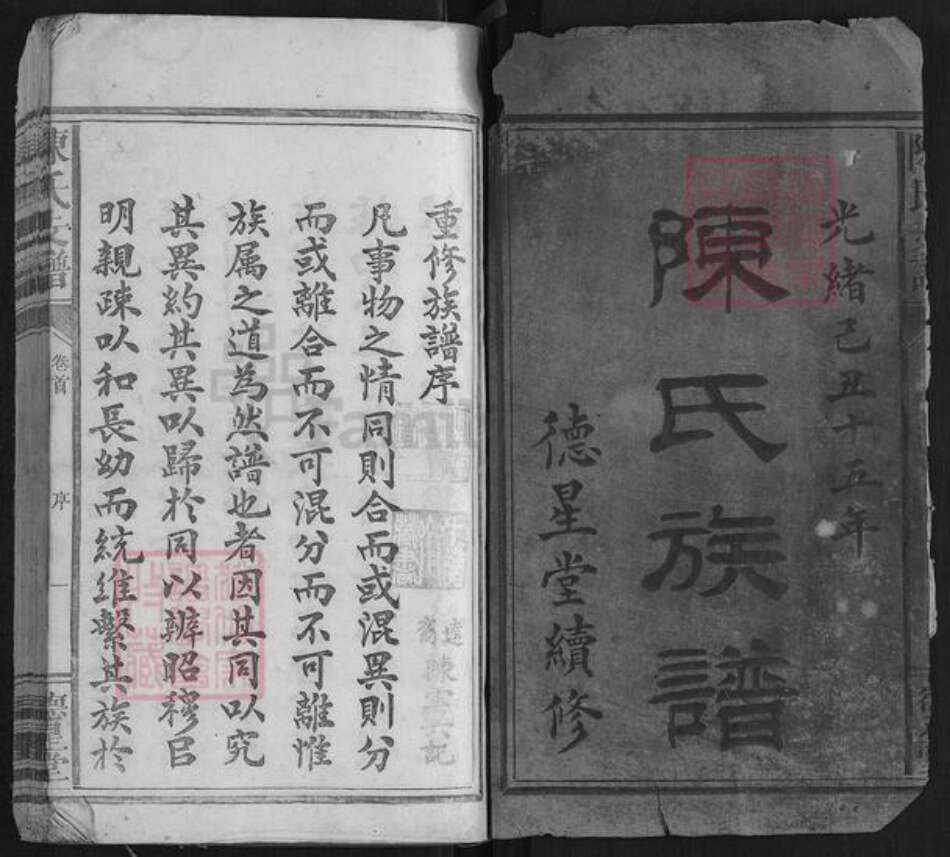 光緒己丑十五年
陳氏族譜
德星堂續修
重修族譜序
凡事物之情同則合而或混異則分
而或離合而不可混分而不可離惟
族属之道為然譜也者因其同以究
其異約其異以歸於同以辨昭穆㠯
明親疎以和長幼而統維繫其族於
陳氏支譜
卷首
序
一
德星堂